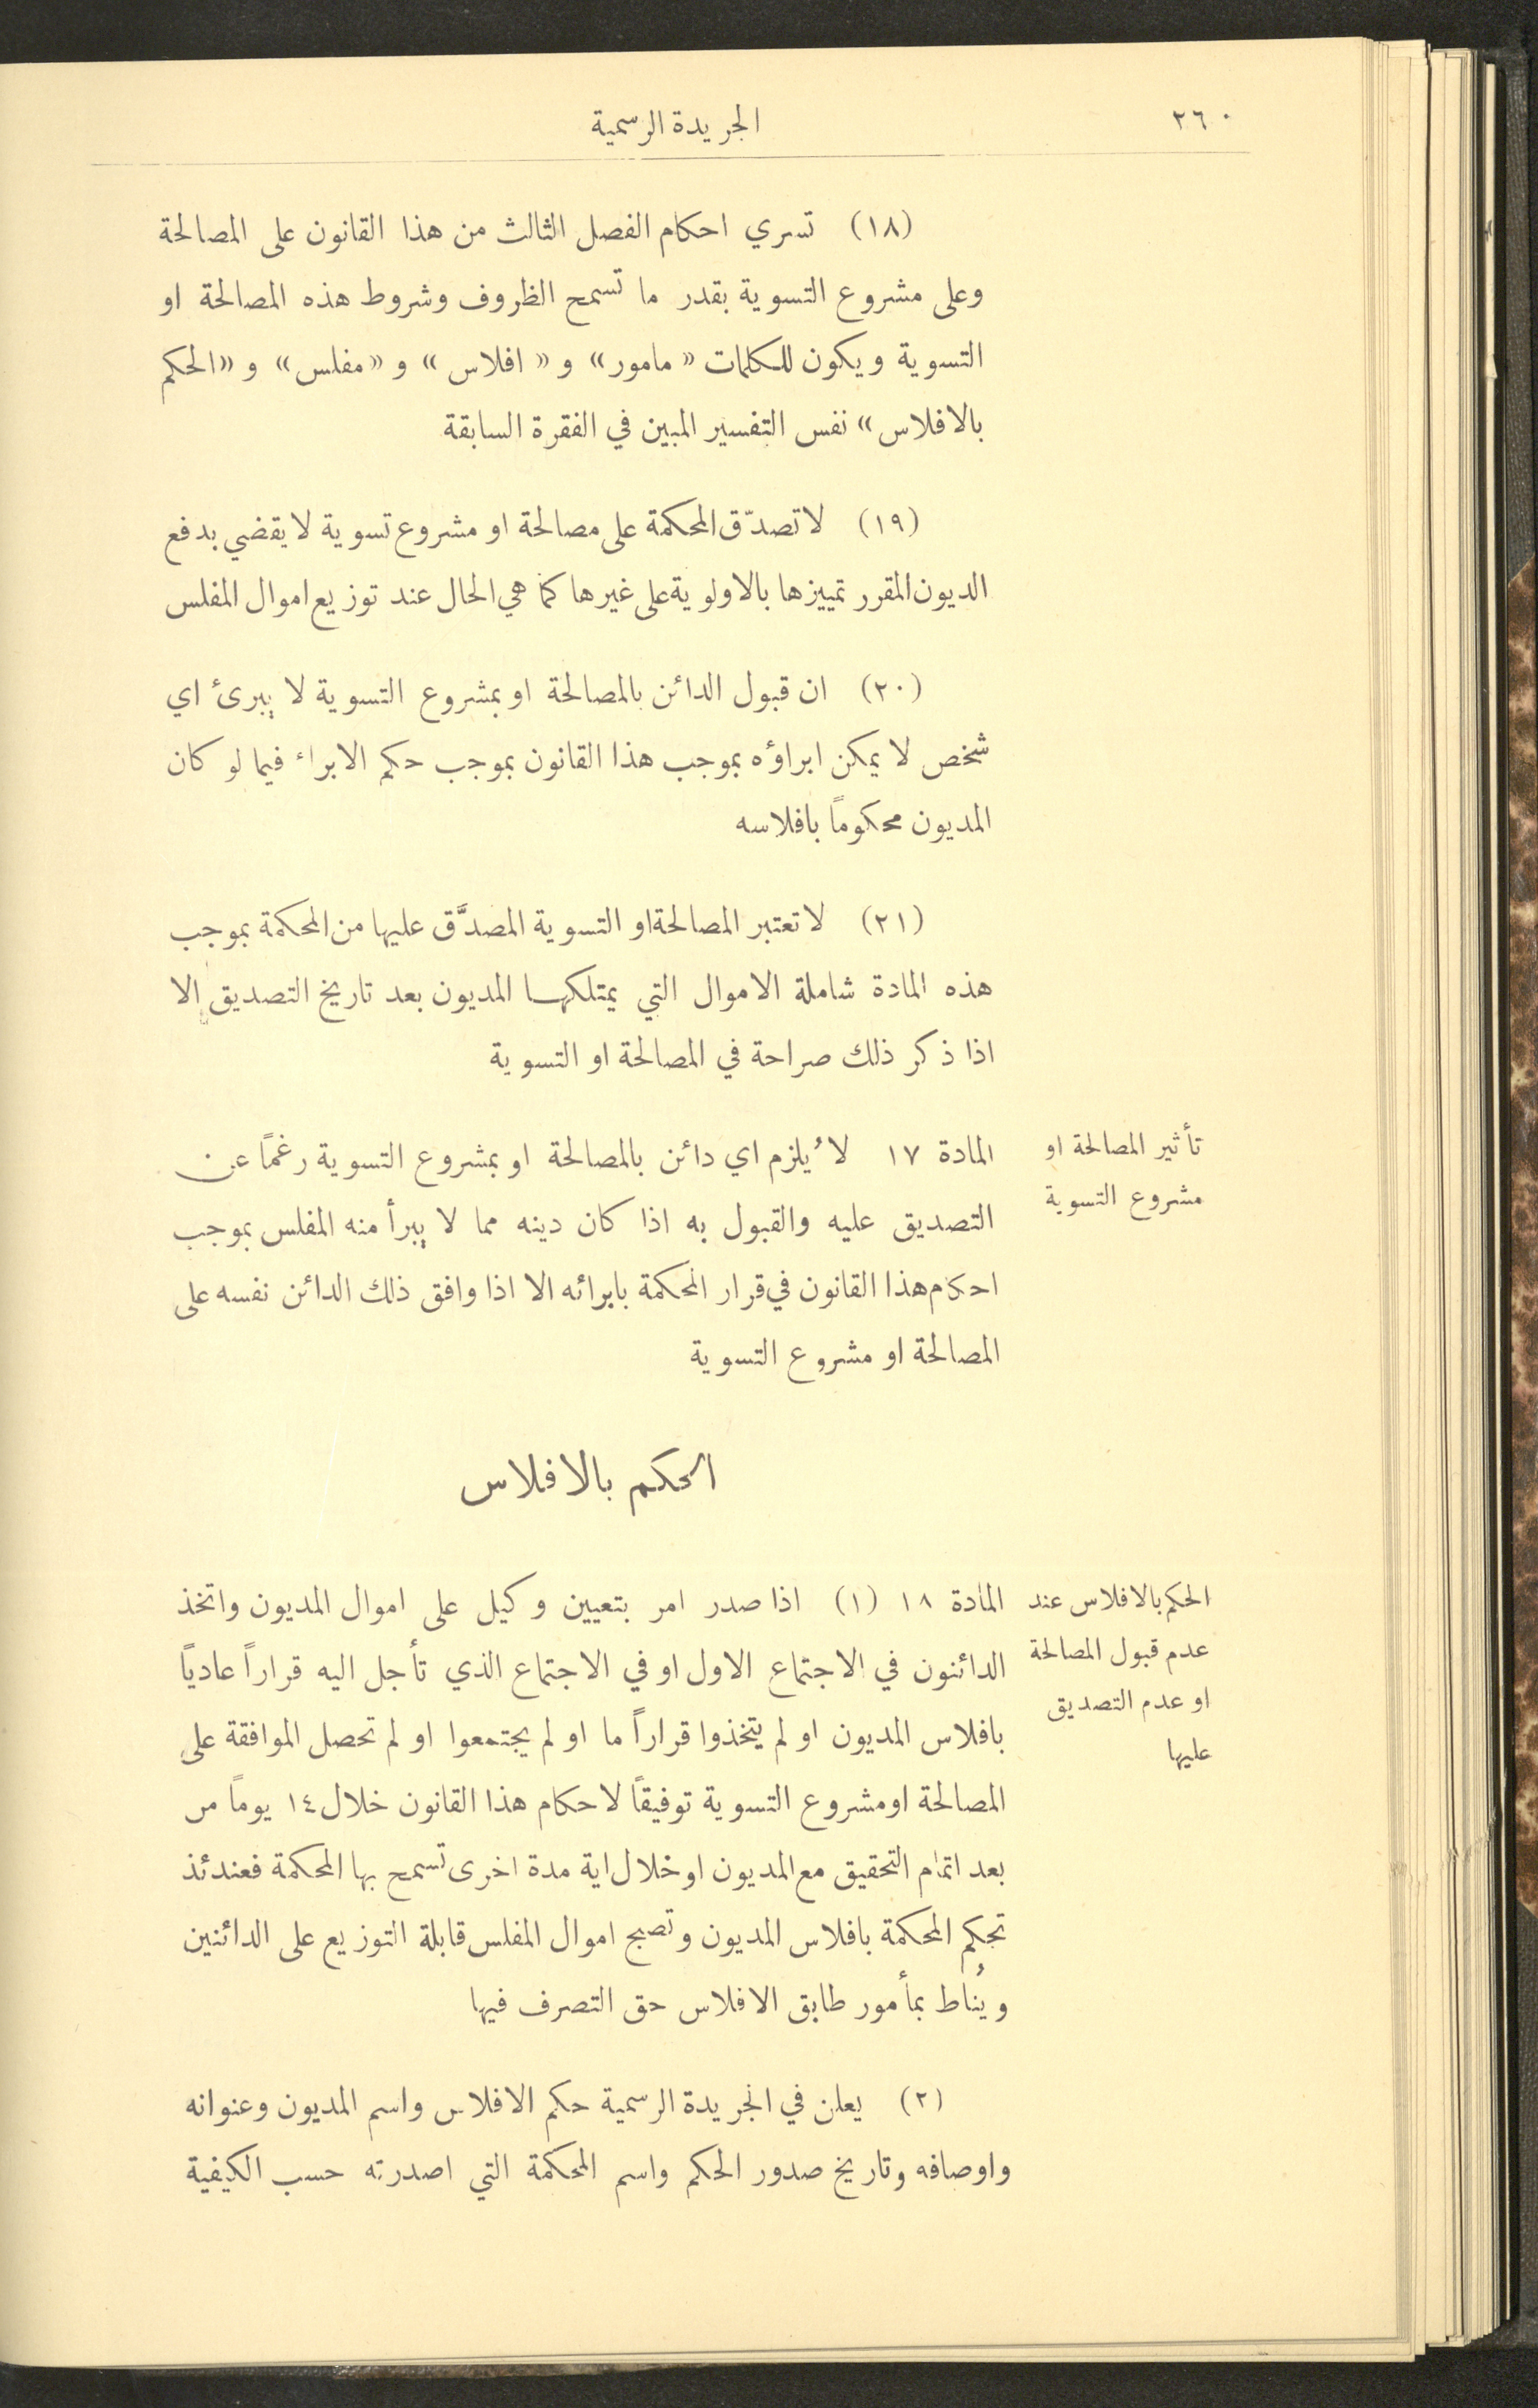 ٢٦٠
الجريدة الرسمية
(١٨) تسري احكام الفصل الثالث من هذا القانون على المصالحة
وعلى مشروع التسوية بقدر ما تسمح الظروف وشروط هذه المصالحة او
التسوية ويكون للكلمات « مامور » و « افلاس » و «مفلس» و «الحكم
بالافلاس» نفس التفسير المبين في الفقرة السابقة
(١٩) لا تصدّق المحكمة على مصالحة او مشروع تسوية لا يقضي بدفع
الديون المقرر تمييزها بالاولوية على غيرها كما هي الحال عند توزيع اموال المفلس
(٢٠) ان قبول الدائن بالمصالحة او بمشروع التسوية لا يبرئ اي
شخص لا يمكن ابراؤه بموجب هذا القانون بموجب حكم الابراء فيما لو كان
المديون محكوماً بافلاسه
(٢١) لا تعتبر المصالحة او التسوية المصدَّق عليها من المحكمة بموجب
هذه المادة شاملة الاموال التي يمتلكها المديون بعد تاريخ التصديق الا
اذا ذكر ذلك صراحة في المصالحة او التسوية
تأثير المصالحة او
مشروع التسوية
المادة ١٧ لا يُلزم اي دائن بالمصالحة او بمشروع التسوية رغماً عن
التصديق عليه والقبول به اذا كان دينه مما لا يبرأ منه المفلس بموجب
احكام هذا القانون في قرار المحكمة بابرائه الا اذا وافق ذلك الدائن نفسه على
المصالحة او مشروع التسوية
الحكم بالافلاس
الحكم بالافلاس عند
عدم قبول المصالحة
او عدم التصديق
عليها
المادة ١٨ (١) اذا صدر امر بتعيين وكيل على اموال المديون واتخذ
الدائنون في الاجتماع الاول او في الاجتماع الذي تأجل اليه قراراً عادياً
بافلاس المديون او لم يتخذوا قراراً ما او لم يجتمعوا او لم تحصل الموافقة على
المصالحة او مشروع التسوية توفيقاً لاحكام هذا القانون خلال ١٤ يوماً من
بعد اتمام التحقيق مع المديون او خلال اية مدة اخرى تسمح بها المحكمة فعندئذ
تحكم المحكمة بافلاس المديون وتصبح اموال المفلس قابلة التوزيع على الدائنين
ويُناط بمأمور طابق الافلاس حق التصرف فيها
(٢) يعلن في الجريدة الرسمية حكم الافلاس واسم المديون وعنوانه
واوصافه وتاريخ صدور الحكم واسم المحكمة التي اصدرته حسب الكيفية